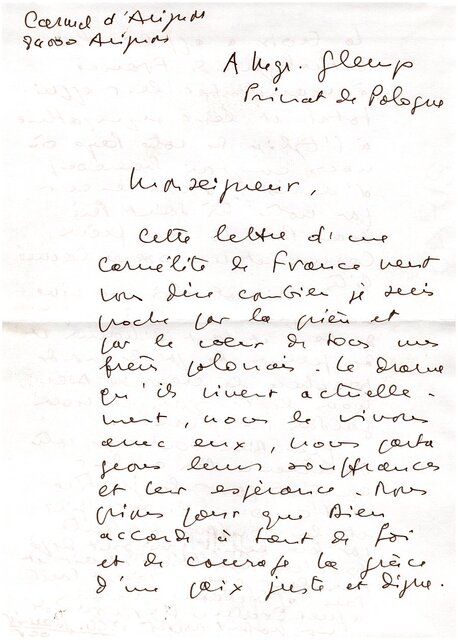 Carmel d'Avignon
84000 Avignon
A Mgr. Glemp
Primat de Pologne
Monseigneur,
Cette lettre d'une
carmélite de France veut
vous dire combien je suis
proche par la prière et
par le cœur de tous mes
frères polonais. Le drame
qu'ils vivent actuelle-
ment, nous le vivons
avec eux, nous parta
geons leurs souffrances
et leur espérance. Nous
prions pour que Dieu
accorde à tant de foi
et de courage la grâce
d'une paix juste et digne.